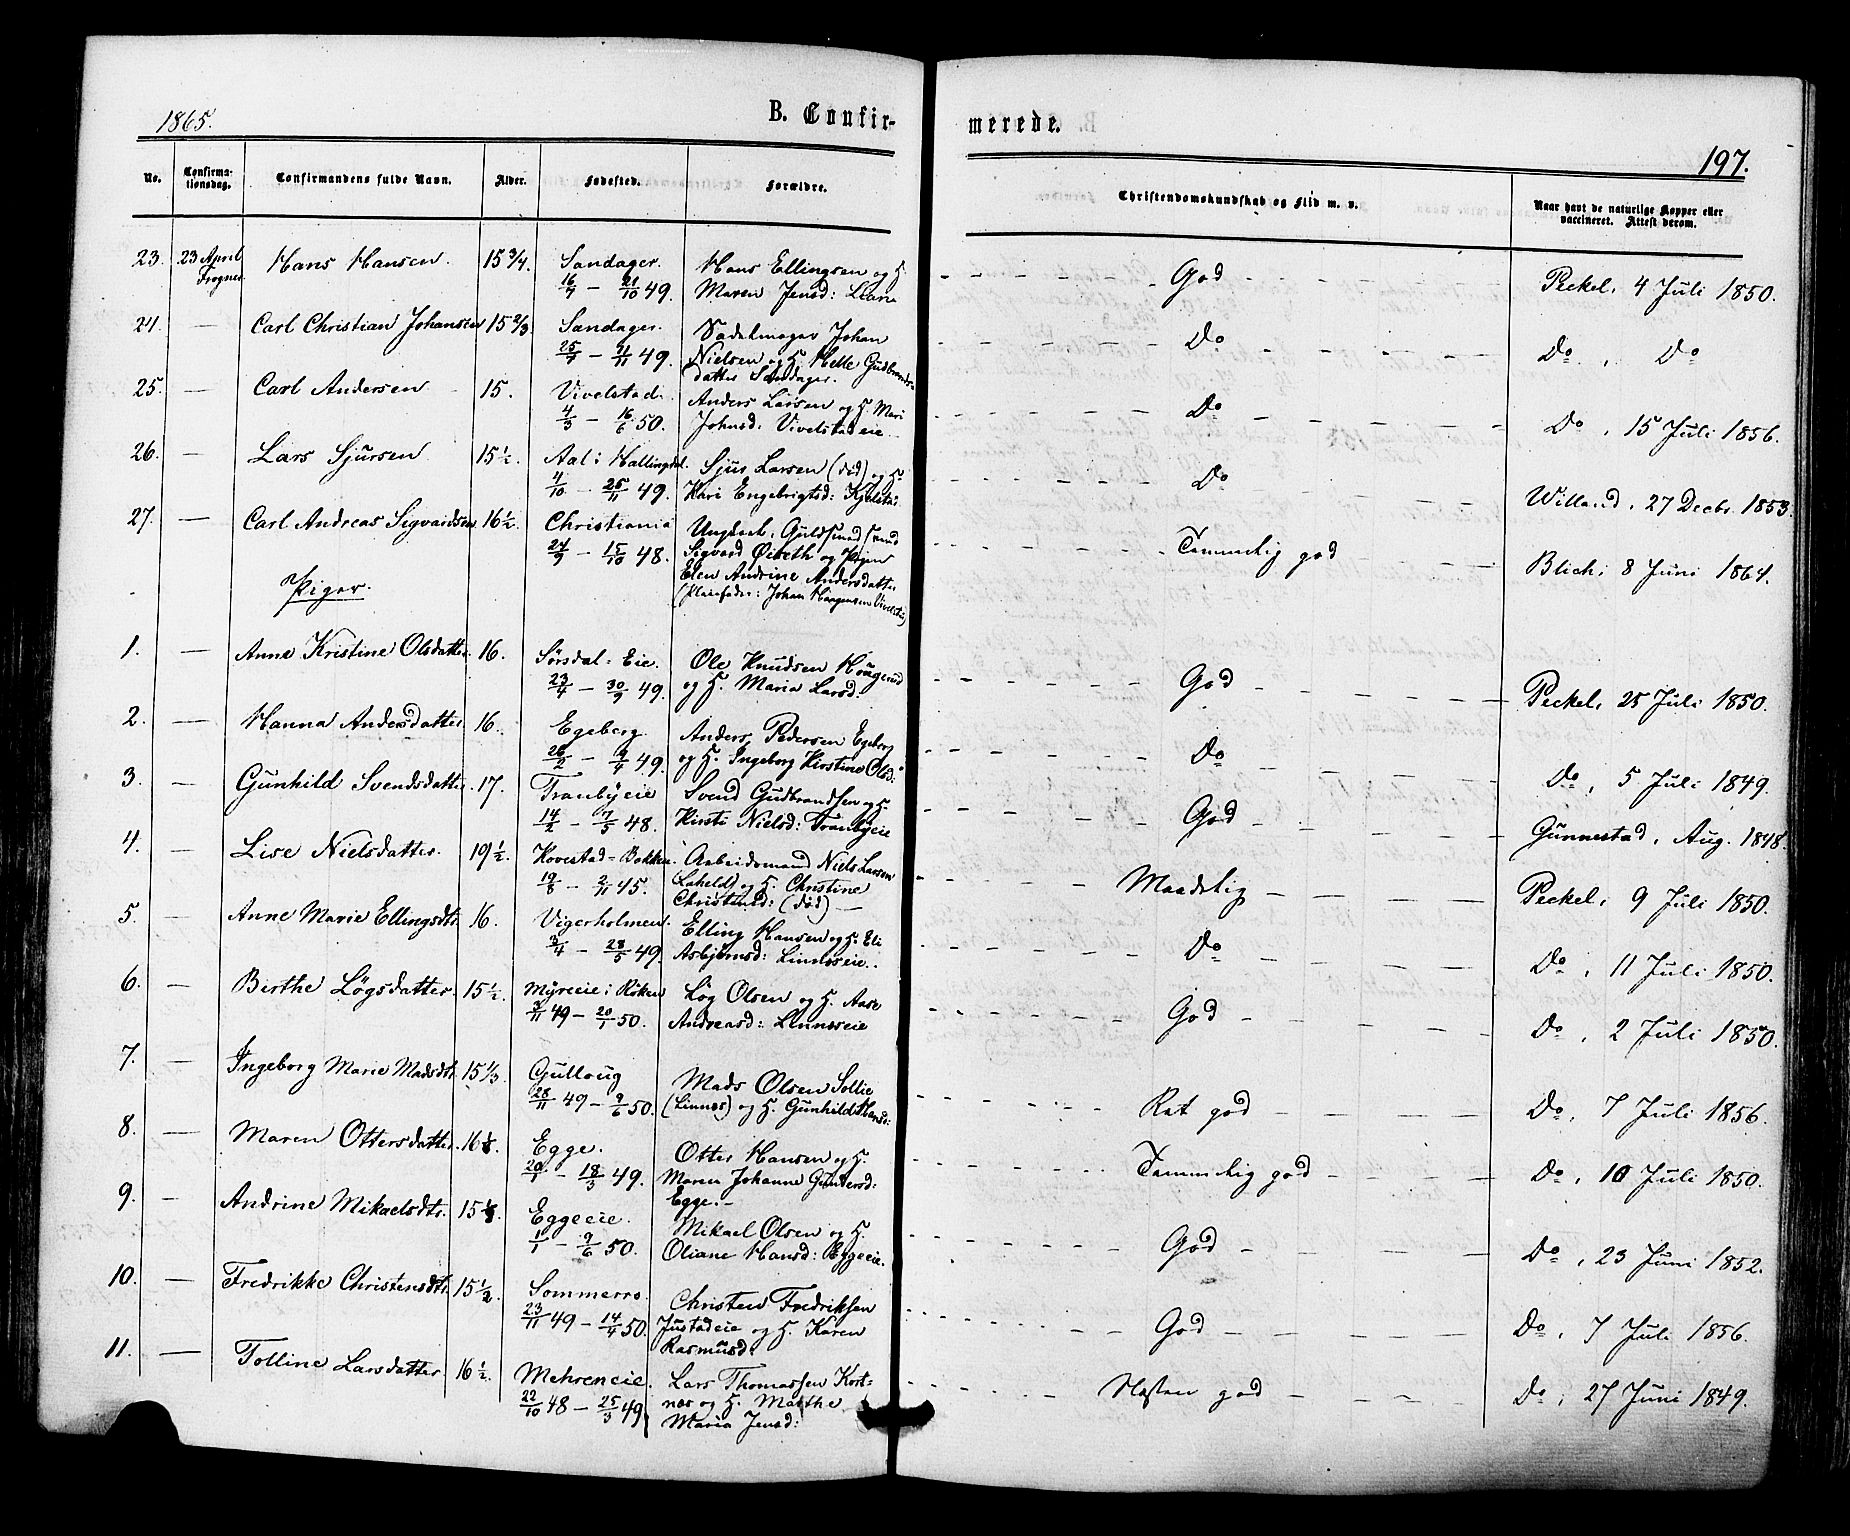 1865.
B. Confir-
merede.
197.
No.
Confirma-
tionsdag.
Confirmandens fulde Navn.
Alder.
Fødested.
Forældre.
Christendomskundskab og Flid m. v.
Naar havt de naturlige Kopper eller
vaccineret. Attest derom.
23. 23 April Hans Hansen. 15 3/4. Sandager. Hans Ellingsen og H.
Frogner 16/7 - 21/10 49. Maren Jensd:
God Peckel, 4 Juli 1850.
24. — Carl Christian Johansen 15 2/3. Sandager. Sadelmager Johan
25/7 - 21/11 49. Nielsen og H. Helle Gudbrands-
datter Sandager.
Do Do, Do
25. — Carl Andersen 15. Vivelstad. Anders Larsen og H. Mari
4/3 - 16/6 50. Johnsd: Vivelstadeie
Do Do, 15 Juli 1856.
26. — Lars Sjursen 15 1/2. Aal i Hallingdal. Sjur Larsen (død) og H.
4/10 - 25/11 49. Kari Engebrigtsd:
Do Willand, 27 Decbr. 1853.
27. — Carl Andreas Sigvardsen 16 1/2. Christiania Ungkarl, Guldsmed
24/9 - 15/10 48. Sigvard og Pigen
Elen Andrine Andersdatter
(Pleiefader: Johan Haagensen
Temmelig god Blich, 8 Juni 1864.
Piger.
1. — Anne Kristine Olsdatter 16. Sørsdal-Eie. Ole Knudsen Haugerud
23/4 - 30/9 49. og H. Maria Larsd.
God Peckel, 25 Juli 1850.
2. — Hanna Andersdatter 16. Egeberg. Anders Pedersen Egeberg
26/2 - 9/4 49. og H. Ingeborg Kirstine Olsd:
Do Do, 5 Juli 1849.
3. — Gunhild Svendsdatter. 17. Tranbyeie Svend Gudbrandsen og H.
14/2 - 7/5 48. Kirsti Nielsd: Tranbyeie
God Gunnestad, Aug. 1848.
4. — Lise Nielsdatter. 19 1/2. Hovestad-Bakken. Arbeidsmand Niels Larsen
19/8 - 2/11 45. og H. Christine
Christensd: (død) —
Maadelig Peckel, 9 Juli 1850.
5. — Anne Marie Ellingsdtr. 16. Vigerholmen. Elling Hansen og H. Eli
3/4 - 28/5 49. Asbjørnsd: Linnæseie.
Do Do, 11 Juli 1850.
6. — Birthe Løgsdatter. 15 1/2. Myreeie i Røken Løg Olsen og H. Aase
3/11 49 - 20/1 50. Andreasd: Linnæseie
God Do, 2 Juli 1850.
7. — Ingeborg Marie Madsdtr. 15 1/3. Gulloug Mads Olsen Sollie
28/11 49 - 9/6 50. (Linnæs) og H. Gunhild Hansd:
Ret god Do, 7 Juli 1856.
8. — Maren Ottersdatter. Egge. Otter Hansen og H.
20/1 - 18/3 49. Maren Johanne Gundersd:
Egge.
Temmelig god Do, 10 Juli 1850.
9. — Andrine Mikaelsdtr. Eggeeie. Mikael Olsen og H.
1/1 - 9/6 50. Oliane Hansd: Eggeeie.
God Do, 23 Juni 1852.
10. — Fredrikke Christensdtr. 15 1/2 Sommerro. Christen Fredriksen
23/11 49 - 14/4 50. Justadeie og H. Karen
Rasmusd.
God Do, 7 Juli 1856.
11. — Tolline Larsdatter. 16 1/2. Mehreneie. Lars Thomassen Kort-
22/10 48 - 25/3 49. næs og H. Marthe
Maria Jensd:
Næsten god Do, 27 Juni 1849.